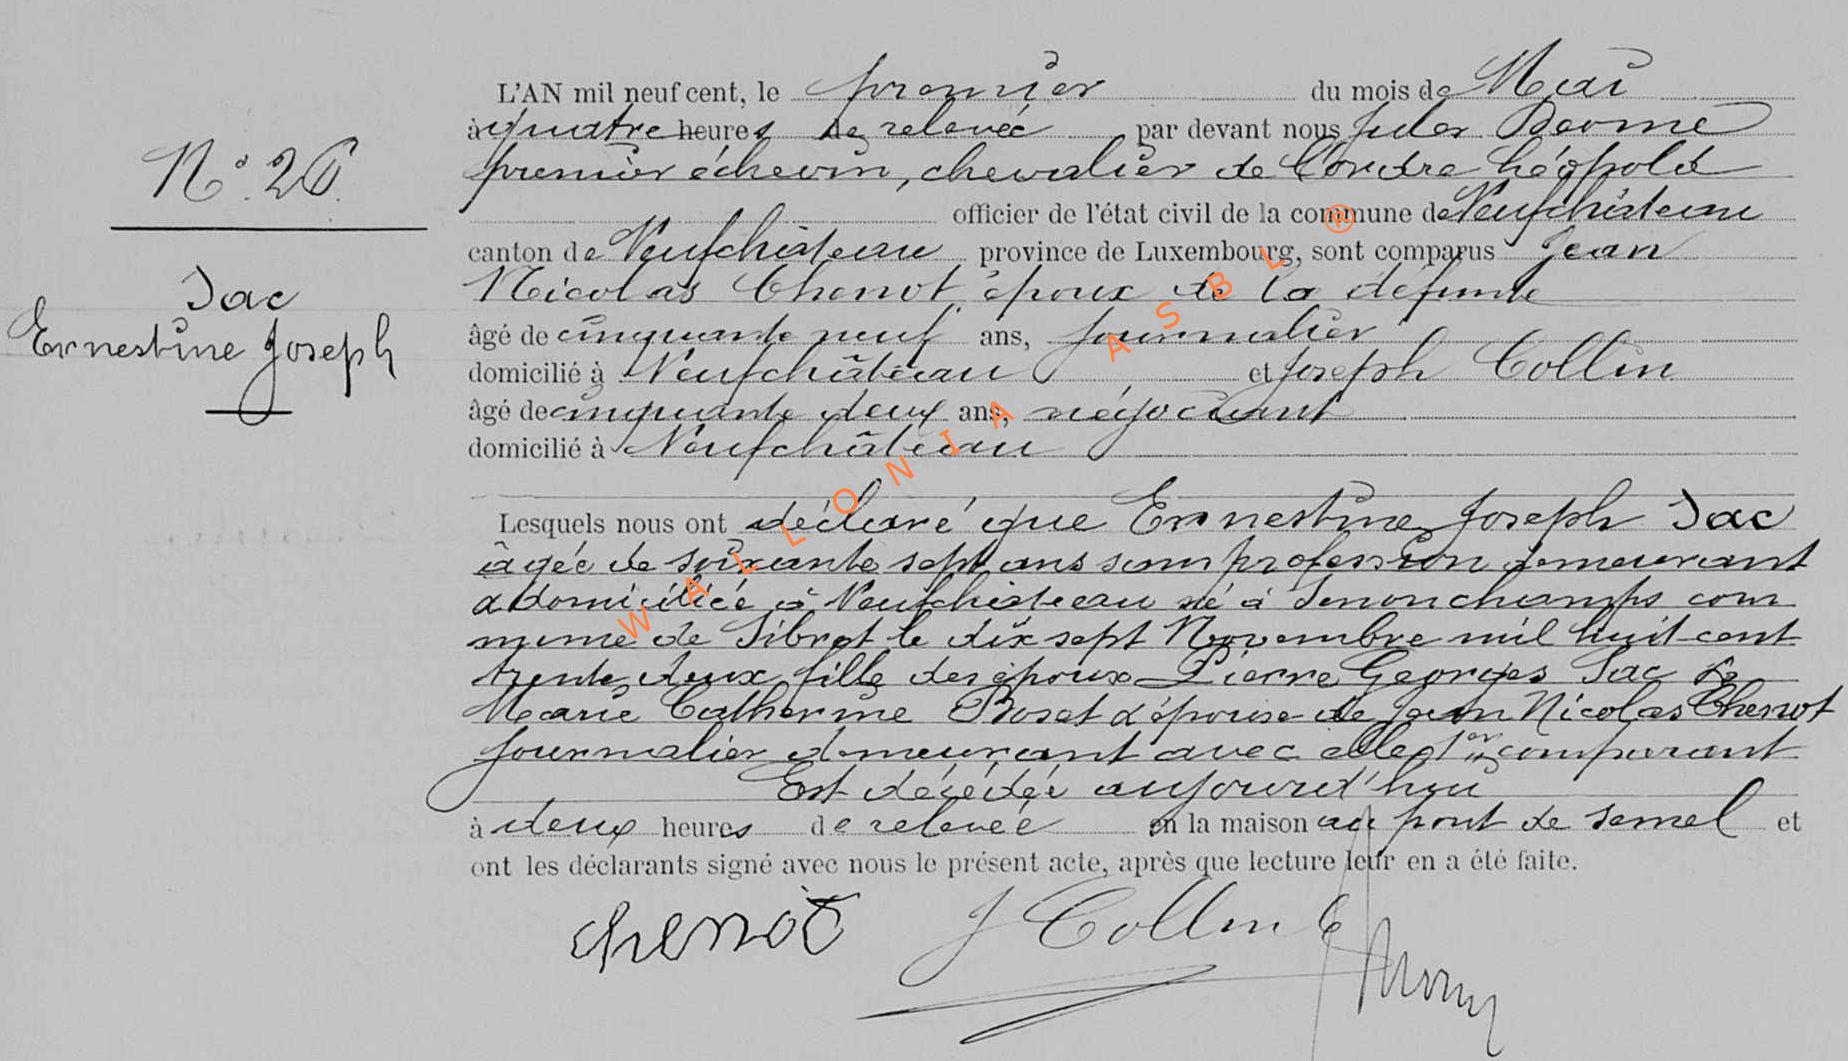 N° 26
Jac
Ernestine Joseph
L'AN mil neuf cent, le premier du mois de Mai
à quatre heures de relevée par devant nous Jules
premier échevin, chevalier de l'ordre Léopold
officier de l'état civil de la commune de Neufchâteau
canton de Neufchâteau province de Luxembourg, sont comparus Jean
Nicolas Chenot, époux de la défunte
âgé de cinquante neuf ans, journalier
domicilié à Neufchâteau et Joseph Collin
âgé de cinquante deux ans, négociant
domicilié à Neufchâteau
Lesquels nous ont déclaré que Ernestine Joseph Jac
âgée de soixante sept ans sans profession demeurant
& domiciliée à Neufchâteau né à Senonchamps com
mune de Sibret le dix sept Novembre mil huit cent
trente deux fille des époux Pierre Georges Jac &
Marie Catherine & épouse de Jean Nicolas Chenot
journalier demeurant avec elle 1er comparant
Est décédée aujourd'hui
à deux heures de relevée en la maison au pont de semel et
ont les déclarants signé avec nous le présent acte, après que lecture leur en a été faite.
chenot J Collin
WALLONIA ASBL ®